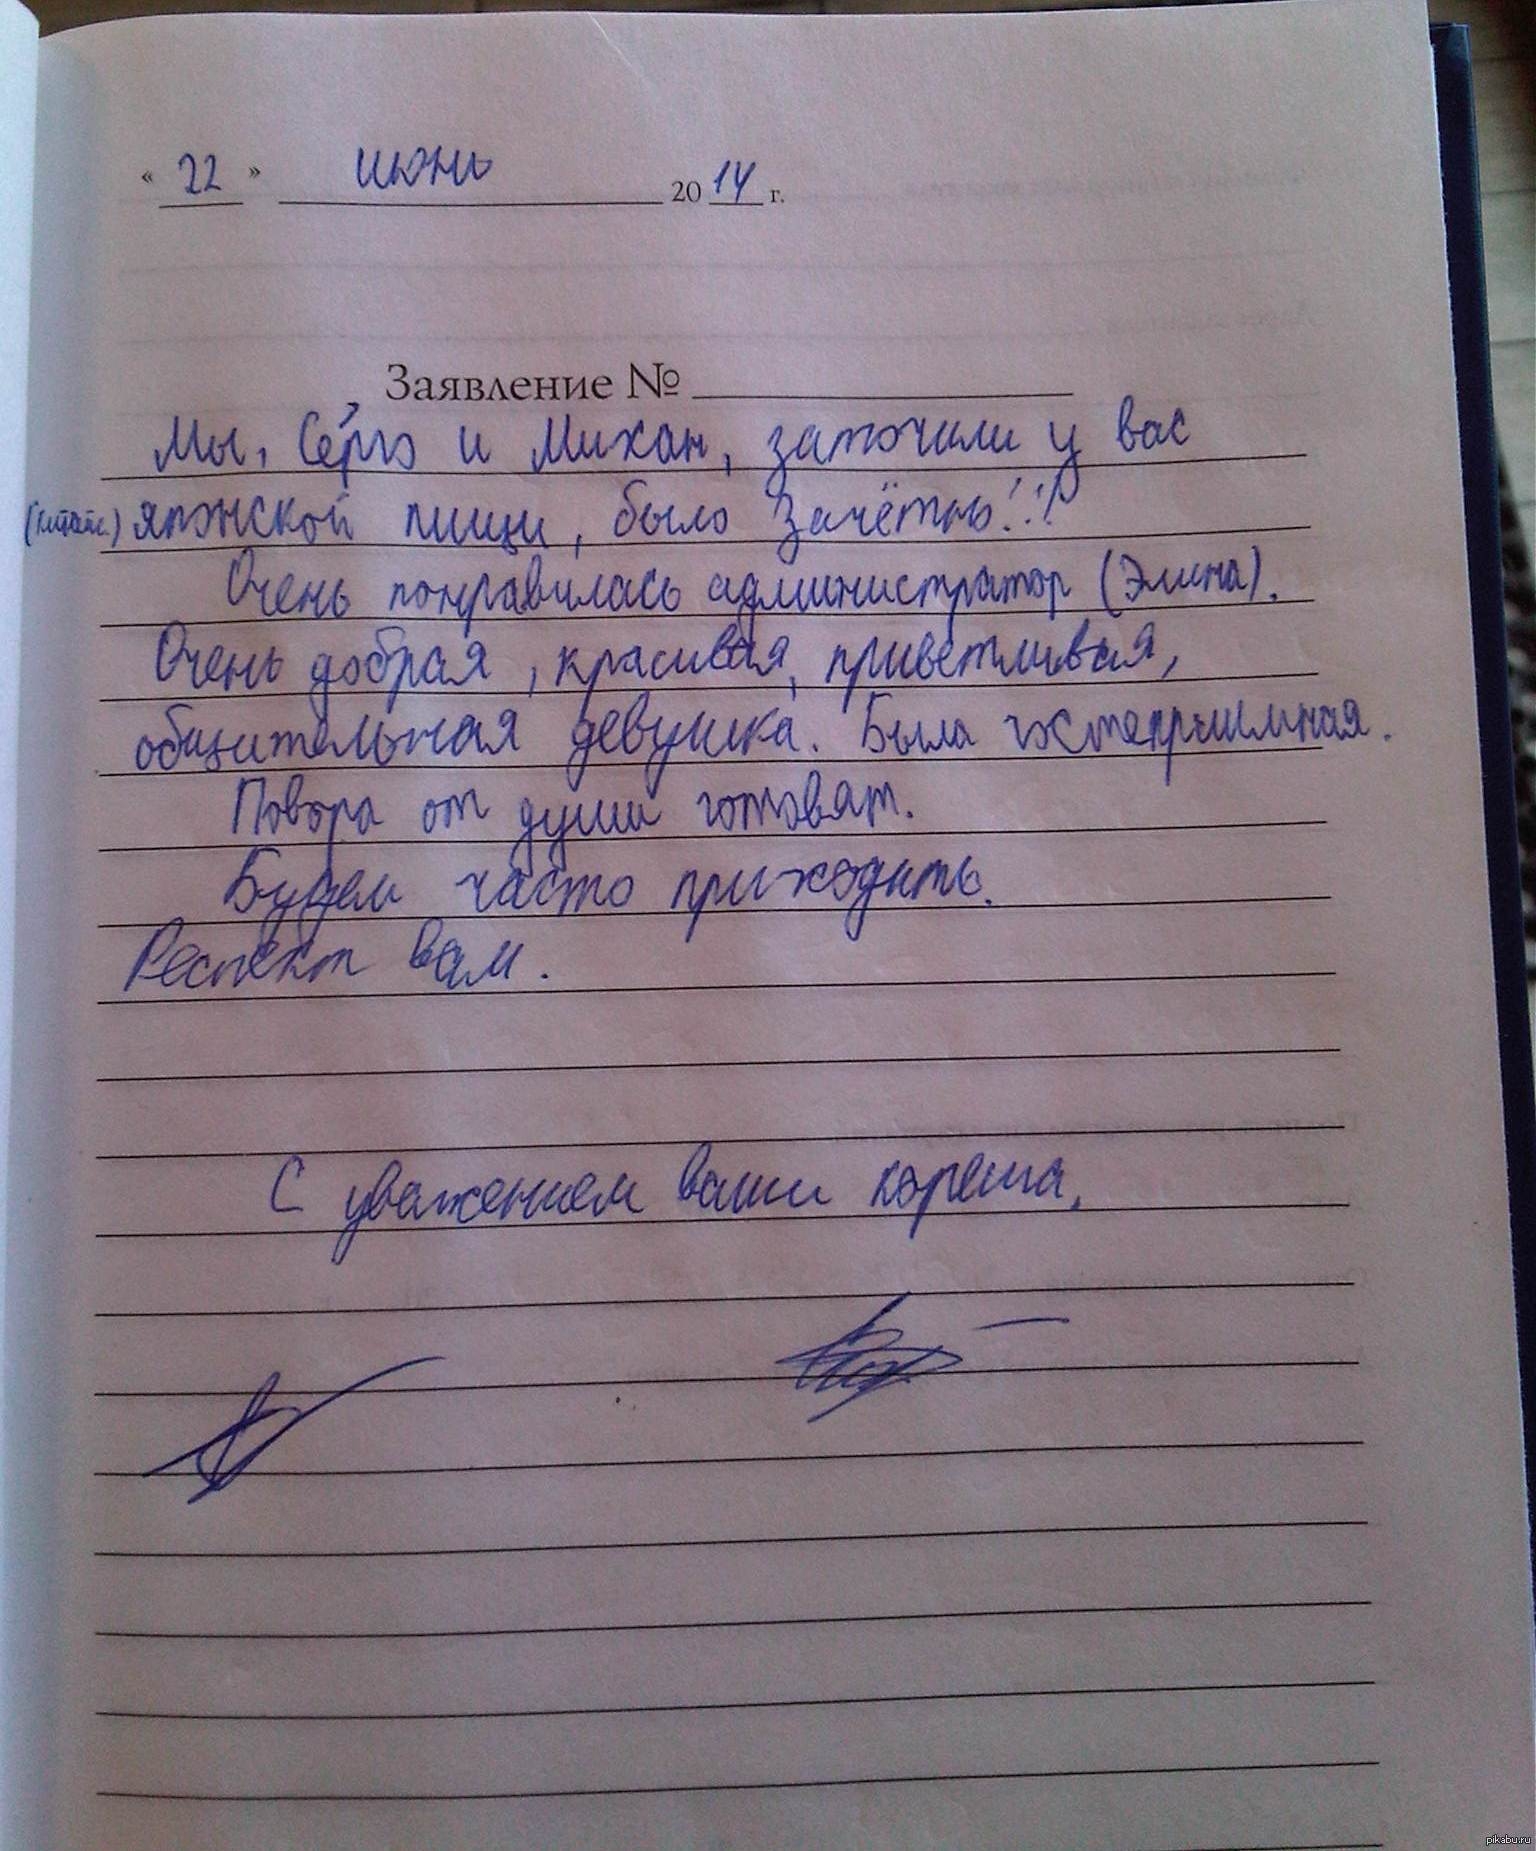 « 22 » июнь 2014 г.
Заявление №
Мы, Серго и Михан, заточили у вас
(китайс.) японской пищи, было зачётно!!!
Очень понравилась администратор (Элина).
Очень добрая, красивая, приветливая,
общительная девушка. Была гостеприимная.
Повора от души готовят.
Будем часто приходить.
Респект вам.
С уважением ваши кореша.
pikabu.ru